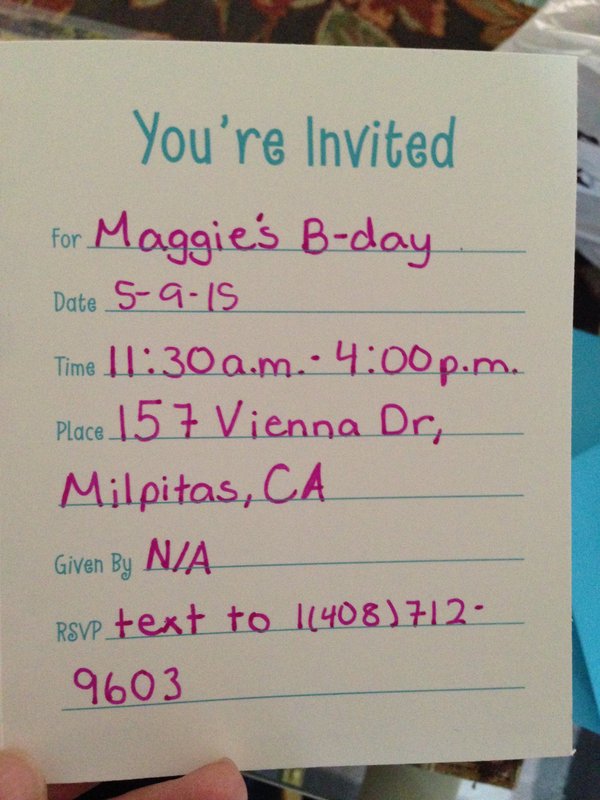 You're Invited
For Maggie's B-day
Date 5-9-15
Time 11:30a.m.- 4:00p.m.
Place 157 Vienna Dr,
Milpitas, CA
Given By N/A
RSVP text to 1(408)712-
9603